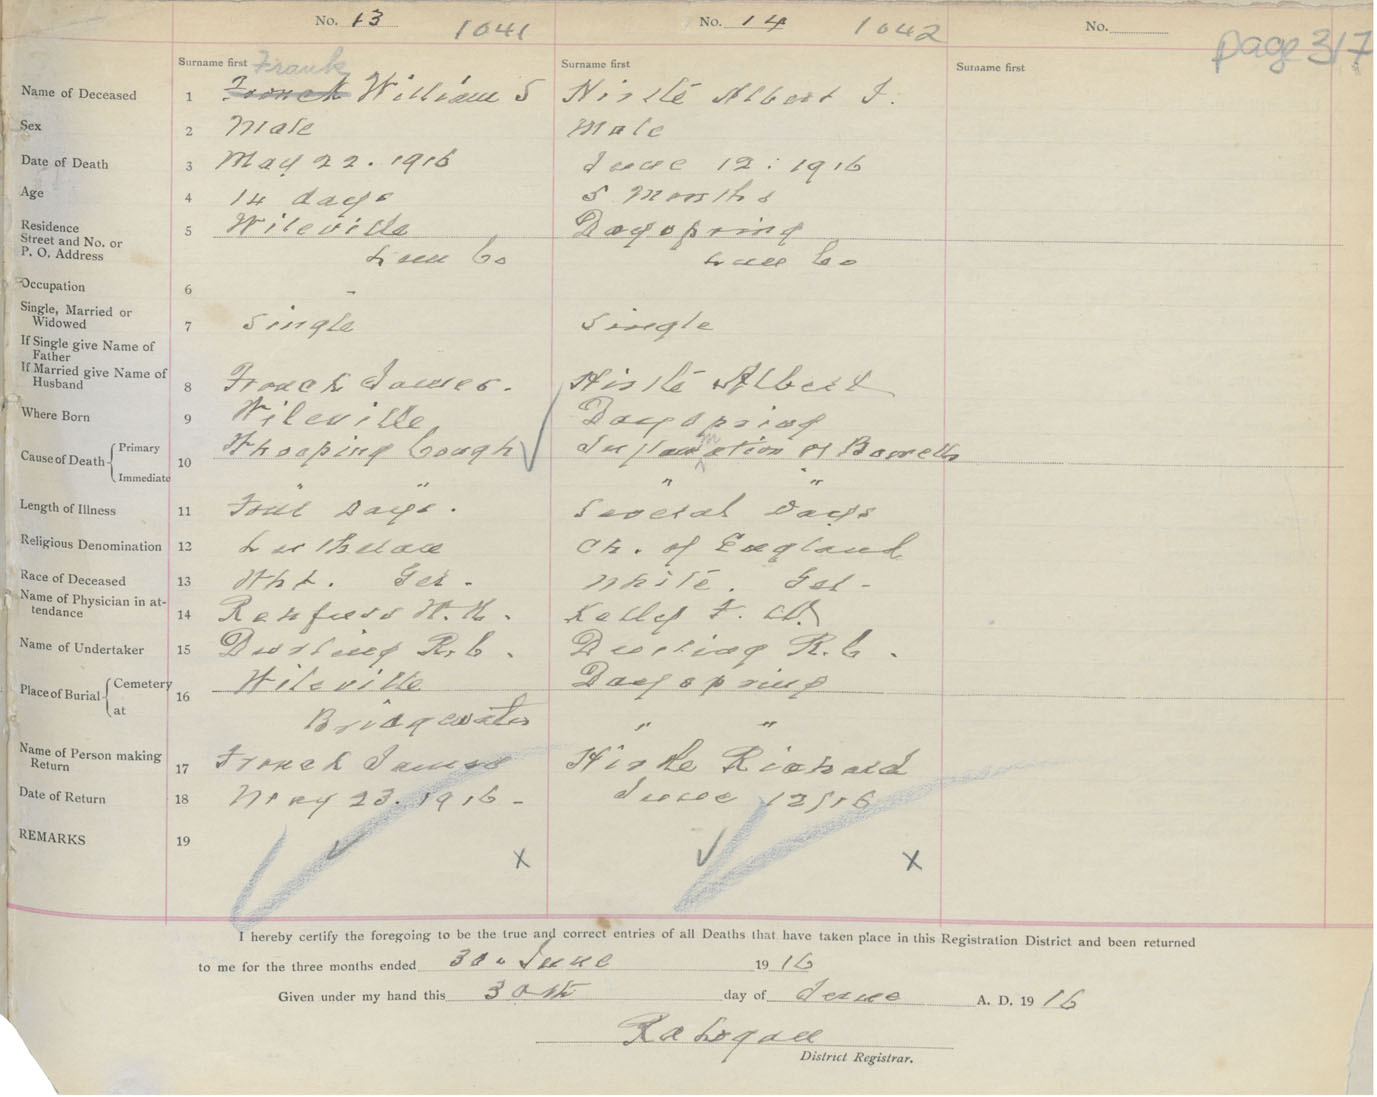 No. 13 1041 No. 14 1042 No. page 317
Surname first Frank Surname first Surname first
Name of Deceased 1 Fronck William S Hirtle Albert J.
Sex 2 Male Male
Date of Death 3 May 22. 1916 June 12. 1916
Age 4 14 days 5 Months
Residence
Street and No. or
P. O. Address 5 Wileville Dayspring
Lun Co Lun Co
Occupation 6 -
Single, Married or
Widowed 7 Single Single
If Single give Name of
Father
If Married give Name of
Husband 8 Fronck James. Hirtle Albert
Where Born 9 Wileville Dayspring
Cause of Death Primary 10 Whooping Cough Inflammation of Bowells
Immediate " " " "
Length of Illness 11 Four Days. Several Days
Religious Denomination 12 Lutheran Ch. of England
Race of Deceased 13 Wht. Ger. White. Ger.
Name of Physician in at-
tendance 14 Rehfuss W. N. Kelly F. W.
Name of Undertaker 15 Dursling R. C. Dursling R. C.
Place of Burial Cemetery 16 Wileville Dayspring
at Bridgewater " "
Name of Person making
Return 17 Fronck James Hirtle Richard
Date of Return 18 May 23. 1916 - June 12/16
REMARKS 19
x x
I hereby certify the foregoing to be the true and correct entries of all Deaths that have taken place in this Registration District and been returned
to me for the three months ended 30" June 19 16
Given under my hand this 30th day of June A. D. 19 16
Ra Logan
District Registrar.